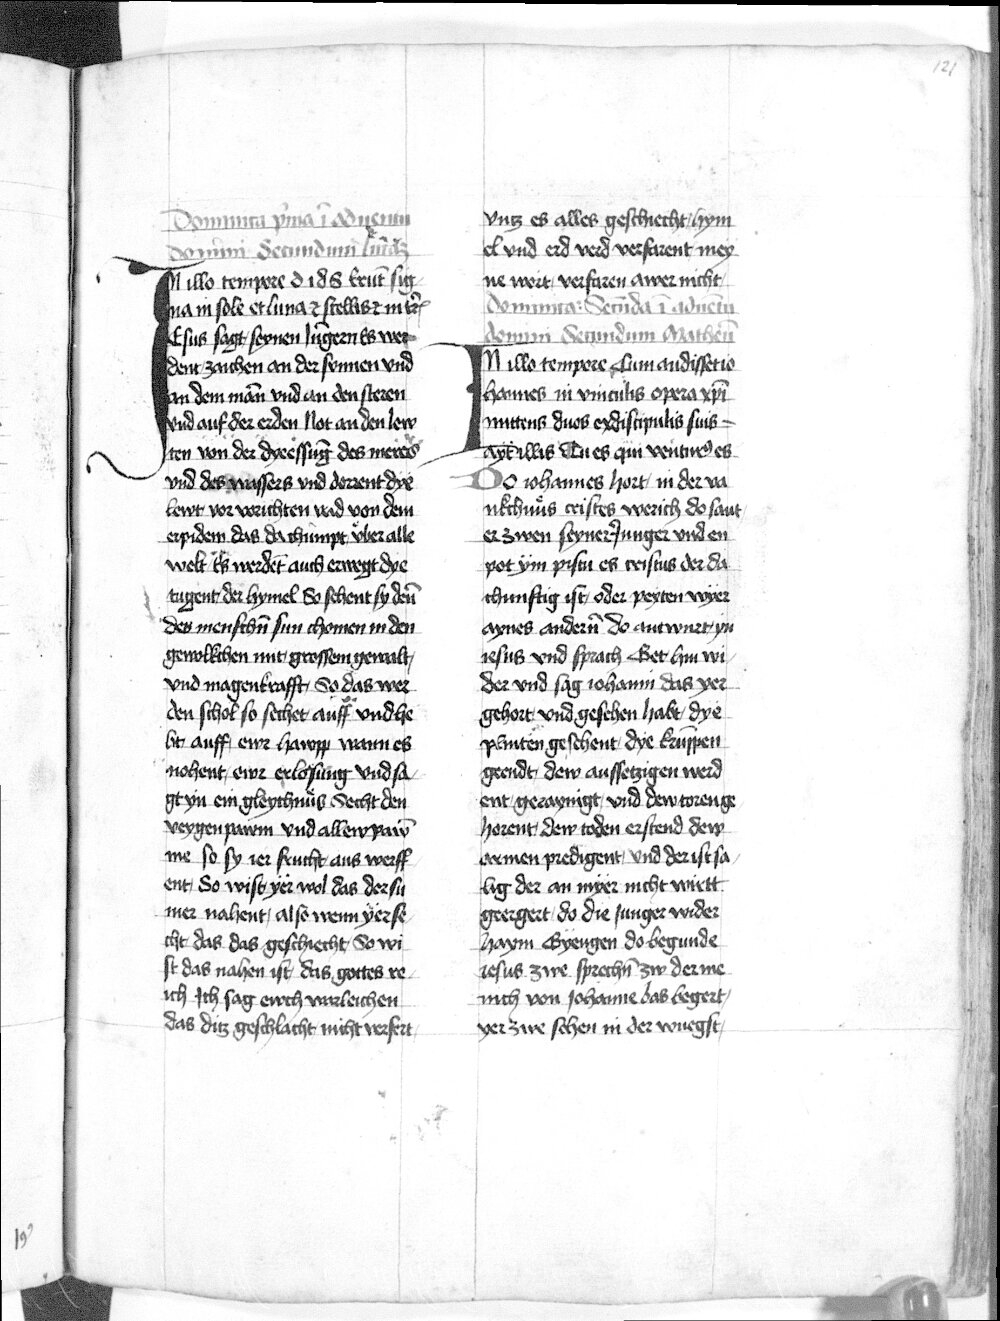 121
Dominica p̄ma ī aduentu
domini Secundum lucā
IN illo tempore d ih̄s Erūt sig
na in sole et luna ⁊ stellis ⁊ in t̄r
Esus sagt seynen Jungern Es wer
dent zaichen an der sunnen vnd
an dem mān vnd an den steren
vnd auf der erden Not an den lew
ten von der dyeessūg des meres
vnd des wassers vnd derrent dye
lewt vor vorichten vnd von dem
erpidem das da chumpt v̈ber alle
welt Es werdēt auch erwegt dye
tugent der hymel So sehent sy dēn
den menschn̄ sun chomen in den
gewolkchen mit grossem gewalt
vnd magenkrafft So das wer
den schol so sechet auff vnd he
bt auff ewr hawpp wann es
nohent ewr erlosung vnd sa
gt yn ein gleychnüs Secht den
veygenpawm vnd allew paw̄
me so sy ier frucht aus werff
ent So wist yer wol das der su
mer nahent also wenn yer se
cht das das geschiecht So wi
st das nahen ist das gottes re
ich Ich sag ewch warleichen
das ditz geschlacht nicht verfert
vntz es alles geschiecht hym
el vnd erd verd verfarent mey
ne wort verfaren awer nicht
Dominica Secūda ī aduētu
domini Secundum Matheū
IN illo tempore Cum audisset io
hannes in vinculis opera xp̄i
mittens duos ex discipulis suis
ayt illis Tu es qui venturꝰ es
DO iohannes hort in der va
nkchnüs cristes werich do sant
er zwen seyner Junger vnd en
pot ym pistu es cristus der da
chunftig ist oder peyten wyer
aynes andern̄ do antwurt yn
iesus vnd sprach Get hin wi
der vnd sag iohanni das yer
gehort vnd gesehen habt dye
plinten gesehent dye krūppen
geendt dew aussetzigen werd
ent geraynigt vnd dew toren ge
horent dew toden erstend dew
armen predigent vnd der ist sa
lig der an myer nicht wirtt
geergert do die Junger wider
haym Gyengen do begunde
iesus zwe sprechn̄ zw der me
nich von Johanne das begert
yer zwe sehen in der wuegst